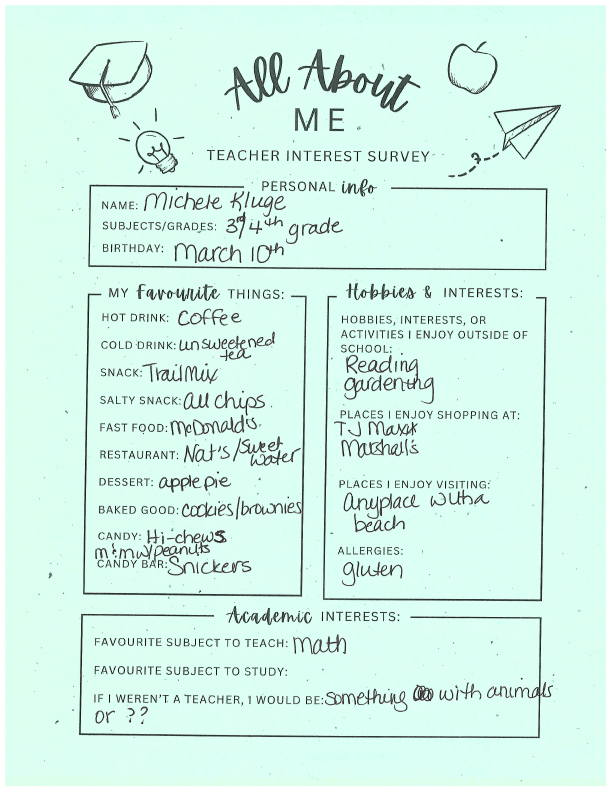 All About
ME
TEACHER INTEREST SURVEY
PERSONAL info
NAME: Michele Kluge
SUBJECTS/GRADES: 3rd/4th grade
BIRTHDAY: March 10th
MY Favourite THINGS:
HOT DRINK: Coffee
COLD DRINK: unsweetened
tea
SNACK: Trail Mix
SALTY SNACK: all chips
FAST FOOD: McDonald's
RESTAURANT: Nat's/Sweet
Water
DESSERT: apple pie
BAKED GOOD: cookies/brownies
CANDY: Hi-chews
m&m w/peanuts
CANDY BAR: Snickers
Hobbies & INTERESTS:
HOBBIES, INTERESTS, OR
ACTIVITIES I ENJOY OUTSIDE OF
SCHOOL:
Reading
gardening
PLACES I ENJOY SHOPPING AT:
TJ Maxx
Marshall's
PLACES I ENJOY VISITING:
Anyplace with a
beach
ALLERGIES:
gluten
Academic INTERESTS:
FAVOURITE SUBJECT TO TEACH: Math
FAVOURITE SUBJECT TO STUDY:
IF I WEREN'T A TEACHER, I WOULD BE: something with animals
or ??